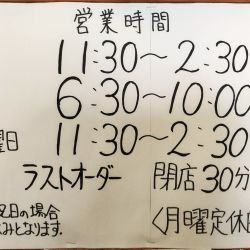 営業時間
11:30～2:30
6:30～10:00
曜日 11:30～2:30
ラストオーダー 閉店30分
祝日の場合
休みとなります.
く月曜定休